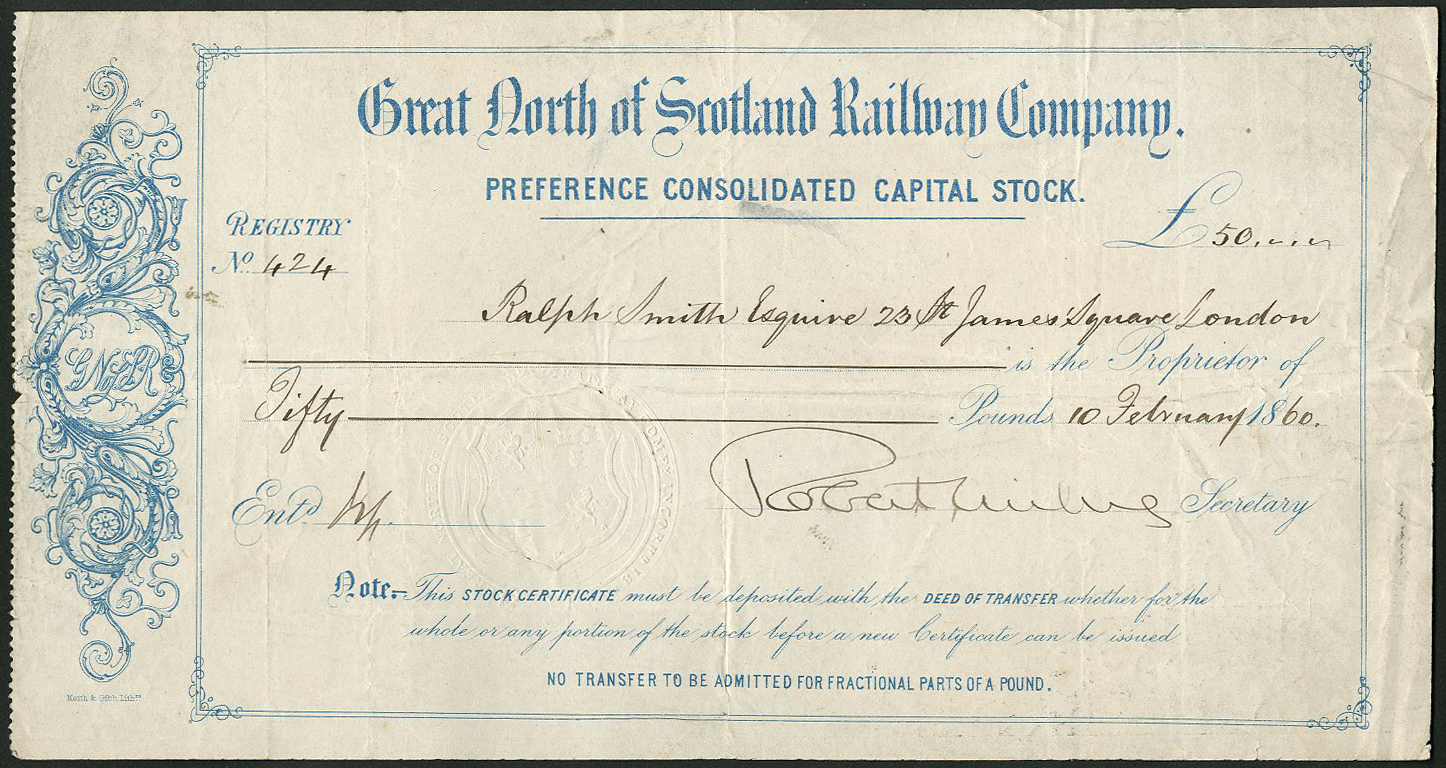 Great North of Scotland Railway Company.
PREFERENCE CONSOLIDATED CAPITAL STOCK.
REGISTRY
£ 50
No. 424
Ralph Smith Esquire 23 St James Square London
is the Proprietor of
GNofSR
Fifty Pounds 10 February 1860.
Entd. Secretary
Note:- This STOCK CERTIFICATE must be deposited with the DEED OF TRANSFER whether for the
whole or any portion of the stock before a new Certificate can be issued
NO TRANSFER TO BE ADMITTED FOR FRACTIONAL PARTS OF A POUND.
Keith & Gibb, Lithrs